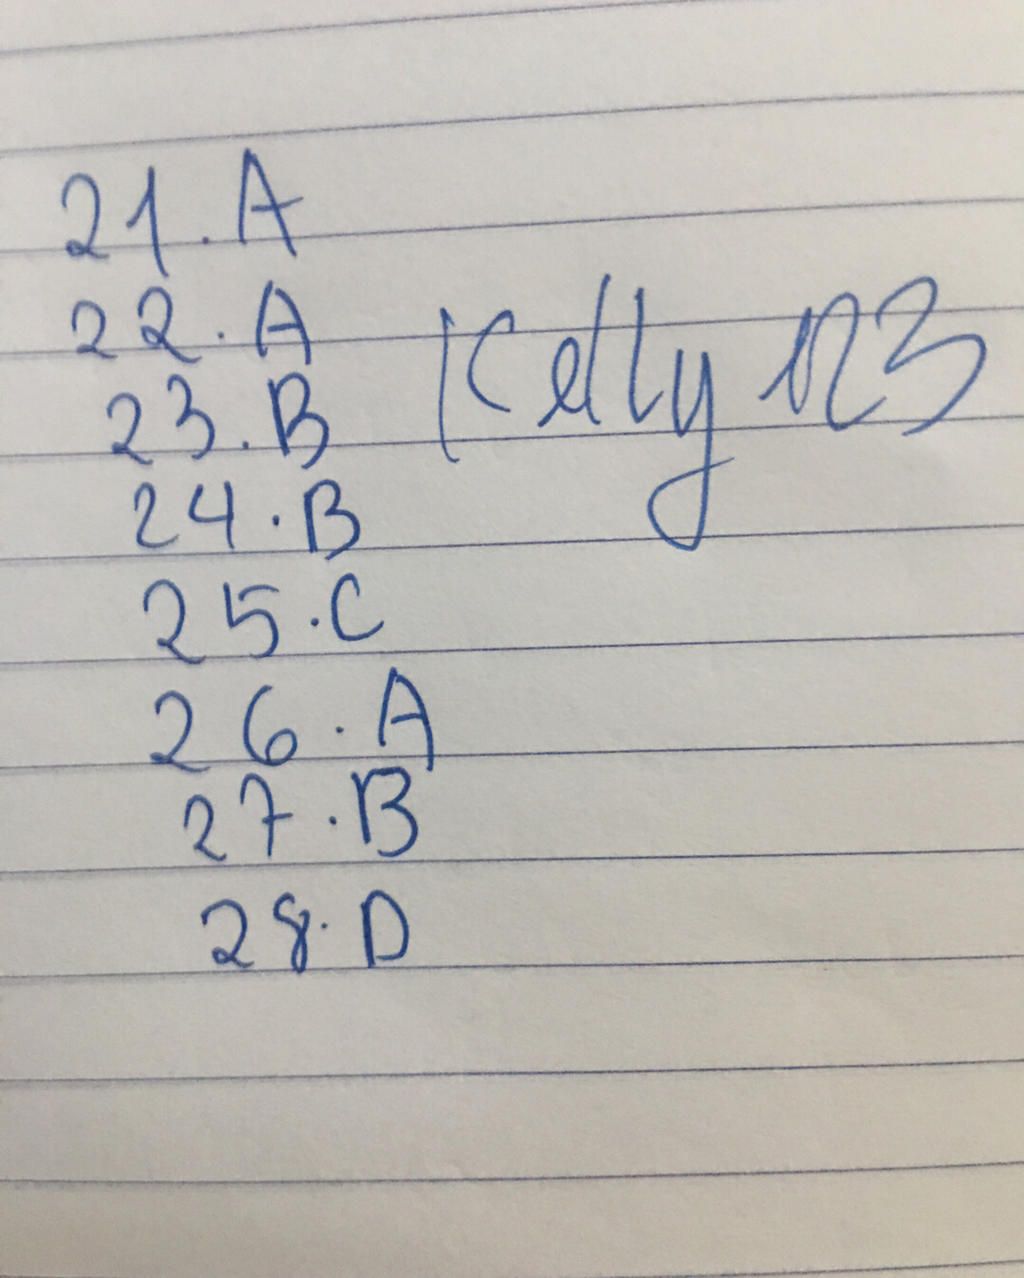 21. A
22. A
23. B
24. B
25. C
26. A
27. B
28. D
Kelly 123